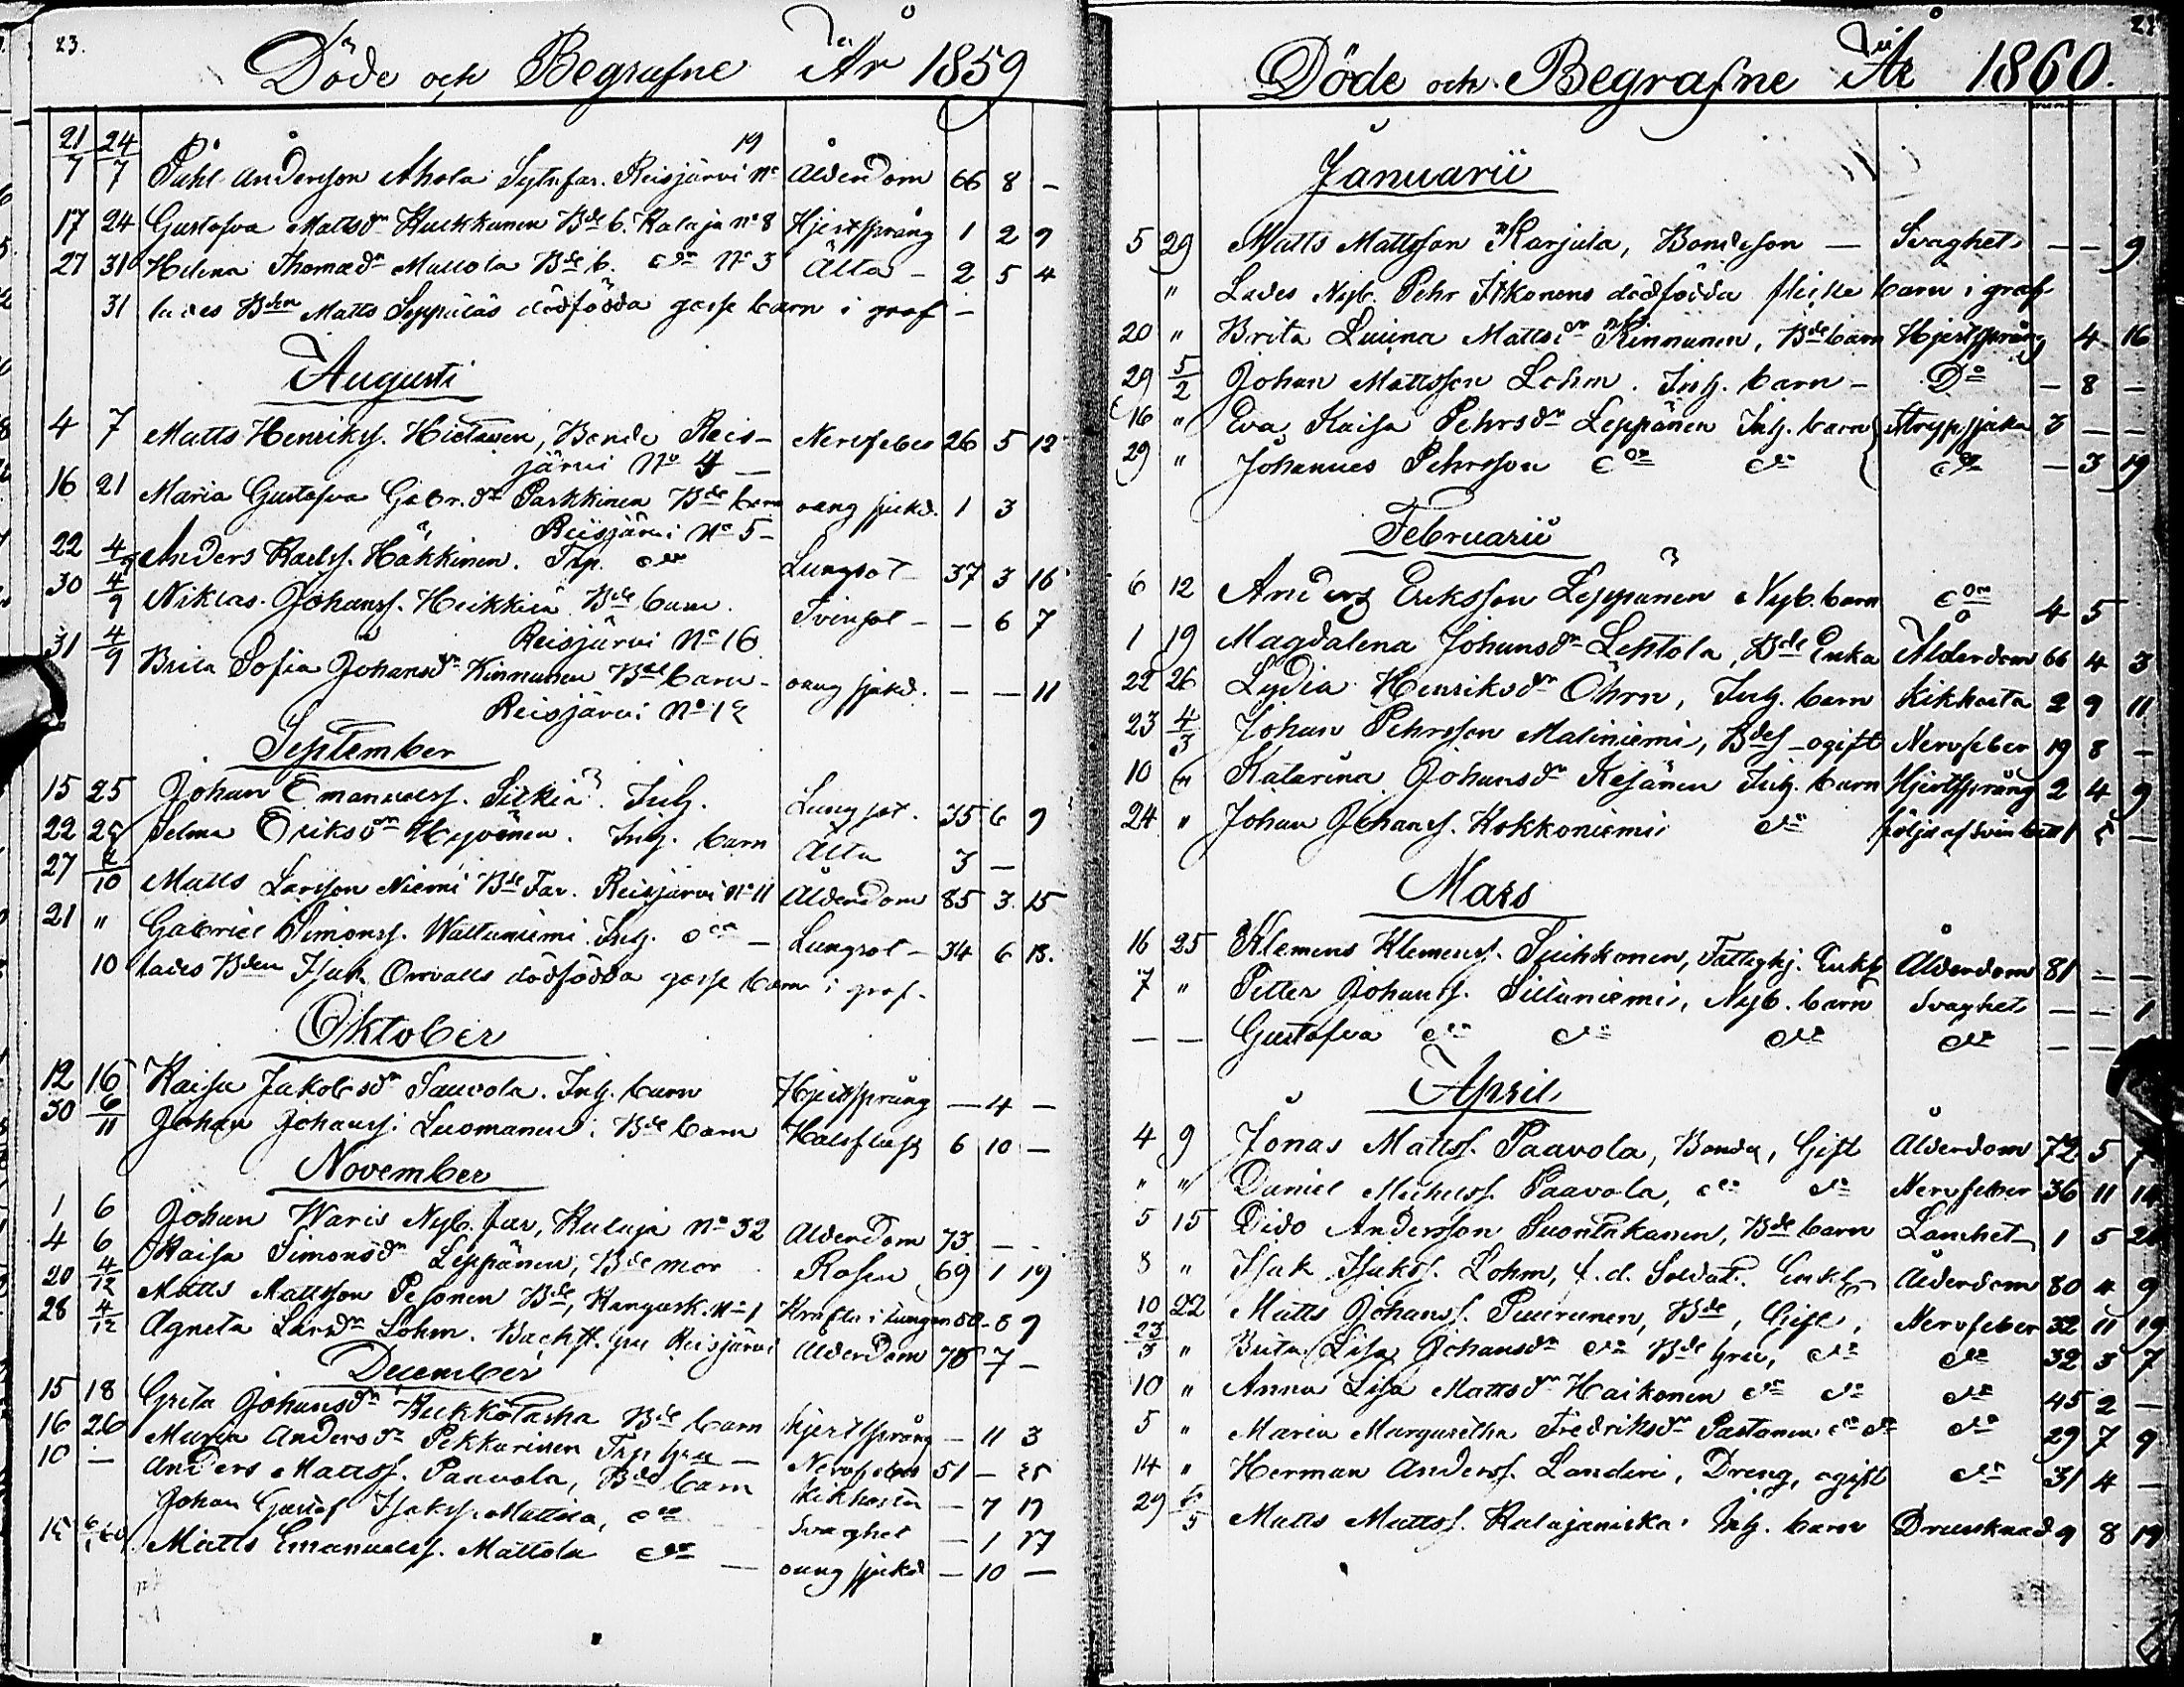 23.
Döde och Begrafne År 1859
21/7 24/7 Påhl Andersson Ahola Sytnfar. Reisjärvi No 19 Ålderdom 66 8 –
17 24 Gustafva Mattsdr Kukkunen Bde b. Kalaja No 8 Hjertsprång 1 2 9
27 31 Helena Thomædr Mattola Bde b. do No 3 Ålta – 2 5 4
31 lades Bden Matts Seppäläs dödfödda gosse barn i graf –
Augusti
4 7 Matts Henrikss. Hietanen, Bonde Reis- Nervfeber 26 5 12
järvi No 4 –
16 21 Maria Gustafva Gabr.dr Parkkinen Bde barn oang sjukd. 1 3
Reisjärvi No 5 –
22 4/9 Anders Karlss. Häkkinen. Trp. do Lungsot – 37 3 16
30 4/9 Niklas Johanss. Heikkilä Bde barn. Tvinsot – – 6 7
Reisjärvi No 16
31 4/9 Brita Sofia Johansdr Kinnunen Bde barn – oang sjukd. – – 11
Reisjärvi No 12
September
15 25 Johan Emanuelss. Sirkiä. Inh. Lungsot. 35 6 9
22 25 Selma Eriksdr Hyvönen. Inh. barn Ålta 3 –
27 2/10 Matts Larsson Niemi Bde Far. Reisjärvi No 11 Ålderdom 85 3 15
21 " Gabriel Simonss. Wattuniemi Inh. do – Lungsot – 34 6 13.
10 lades Bden Isak Orrvalls dödfödda gosse barn i graf.
Oktober
12 16 Kaisa Jakobsdr Sauvola. Inh. barn Hjertsprång – 4 –
30 6/11 Johan Johanss. Luomanen. Bde barn Halsfluss 6 10 –
November
1 6 Johan Waris Nyb. far, Kalaja No 32 Ålderdom 73 – –
4 6 Kaisa Simonsdr Leppänen, Bde mor Rosen 69 1 19
20 4/12 Matts Mattsson Pesonen Bde, Kangask. No 1 Kräfta i lungan 50 – 8 9
28 4/12 Agneta Larsdr Lohm. Backst. gu Reisjärvi Ålderdom 78 7 –
December
15 18 Greta Johansdr Kukkotaska Bde barn hjertsprång – 11 3
16 26 Maria Andersdr Pekkarinen Trp hru – Nervfeber 51 – 25
10 – Anders Mattss. Paavola, Bde barn Kikhosta – 7 17
Johan Gustaf Isakss. Mattila, do Svaghet – 1 17
Matts Emanuelss. Mattola do – oang sjukd – 10 –
Döde och Begrafne År 1860.
Januarii
5 29 Matts Mattsson Karjula, Bondeson – Svaghet – – 9
" Lades Nyb. Pehr Itkonens dödfödda flicke barn i graf
20 " Brita Lovina Mattsdr Kinnunen, Bde barn Hjertsprång 4 16
29 5/2 Johan Mattsson Lohm. Inh. barn – Do – 8 –
16 " Eva Kaisa Pehrsdr Leppänen Inh. barn Strypsjuka 3 – –
29 " Johannes Pehrsson do do do – 3 19
Februarii
6 12 Anders Eriksson Leppänen Nyb. barn do 4 5
1 19 Magdalena Johansdr Lehtola, Bde Enka Ålderdom 66 4 3
22 26 Lydia Henriksdr Öhrn, Inh. barn Kikhosta 2 9 11
23 4/3 Johan Pehrsson Maliniemi, Bdes – ogift Nervfeber 19 8 –
10 " Katarina Johansdr Kejänen Inh. barn Hjertsprång 2 4 9
24 " Johan Johanss. Kokkoniemi do
Mars
16 25 Klemens Klemenss. Siuhkonen, Fattighj. Enkl. Ålderdom 81 – –
7 " Petter Johanss. Siltaniemi, Nyb. barn Svaghet – – 1
– – Gustafva do do do do – –
April
4 9 Jonas Mattss. Paavola, Bonde, Gift Ålderdom 72 5
" " Daniel Michelss. Paavola, do do Nervfeber 36 11 14
5 15 Dido Andersson Suontakanen, Bde barn 1 5
8 " Isak Isakss. Lohm, f.d. Soldat. Enkl. Ålderdom 80 4 9
10 22 Matts Johanss. Puurunen, Bde, Gift, Nervfeber 32 11 19
23/3 " Brita Lisa Johansdr do Bde hru, do do 32 3 7
10 " Anna Lisa Mattsdr Haikonen do do do 45 2 –
5 " Maria Margaretha Fredriksdr Pastanen do do do 29 7 9
14 " Herman Anderss. Landeri, Dreng, ogift do 31 4 –
29 6/5 Matts Mattss. Kalajaniska. Inh. barn Drunknad 9 8 19